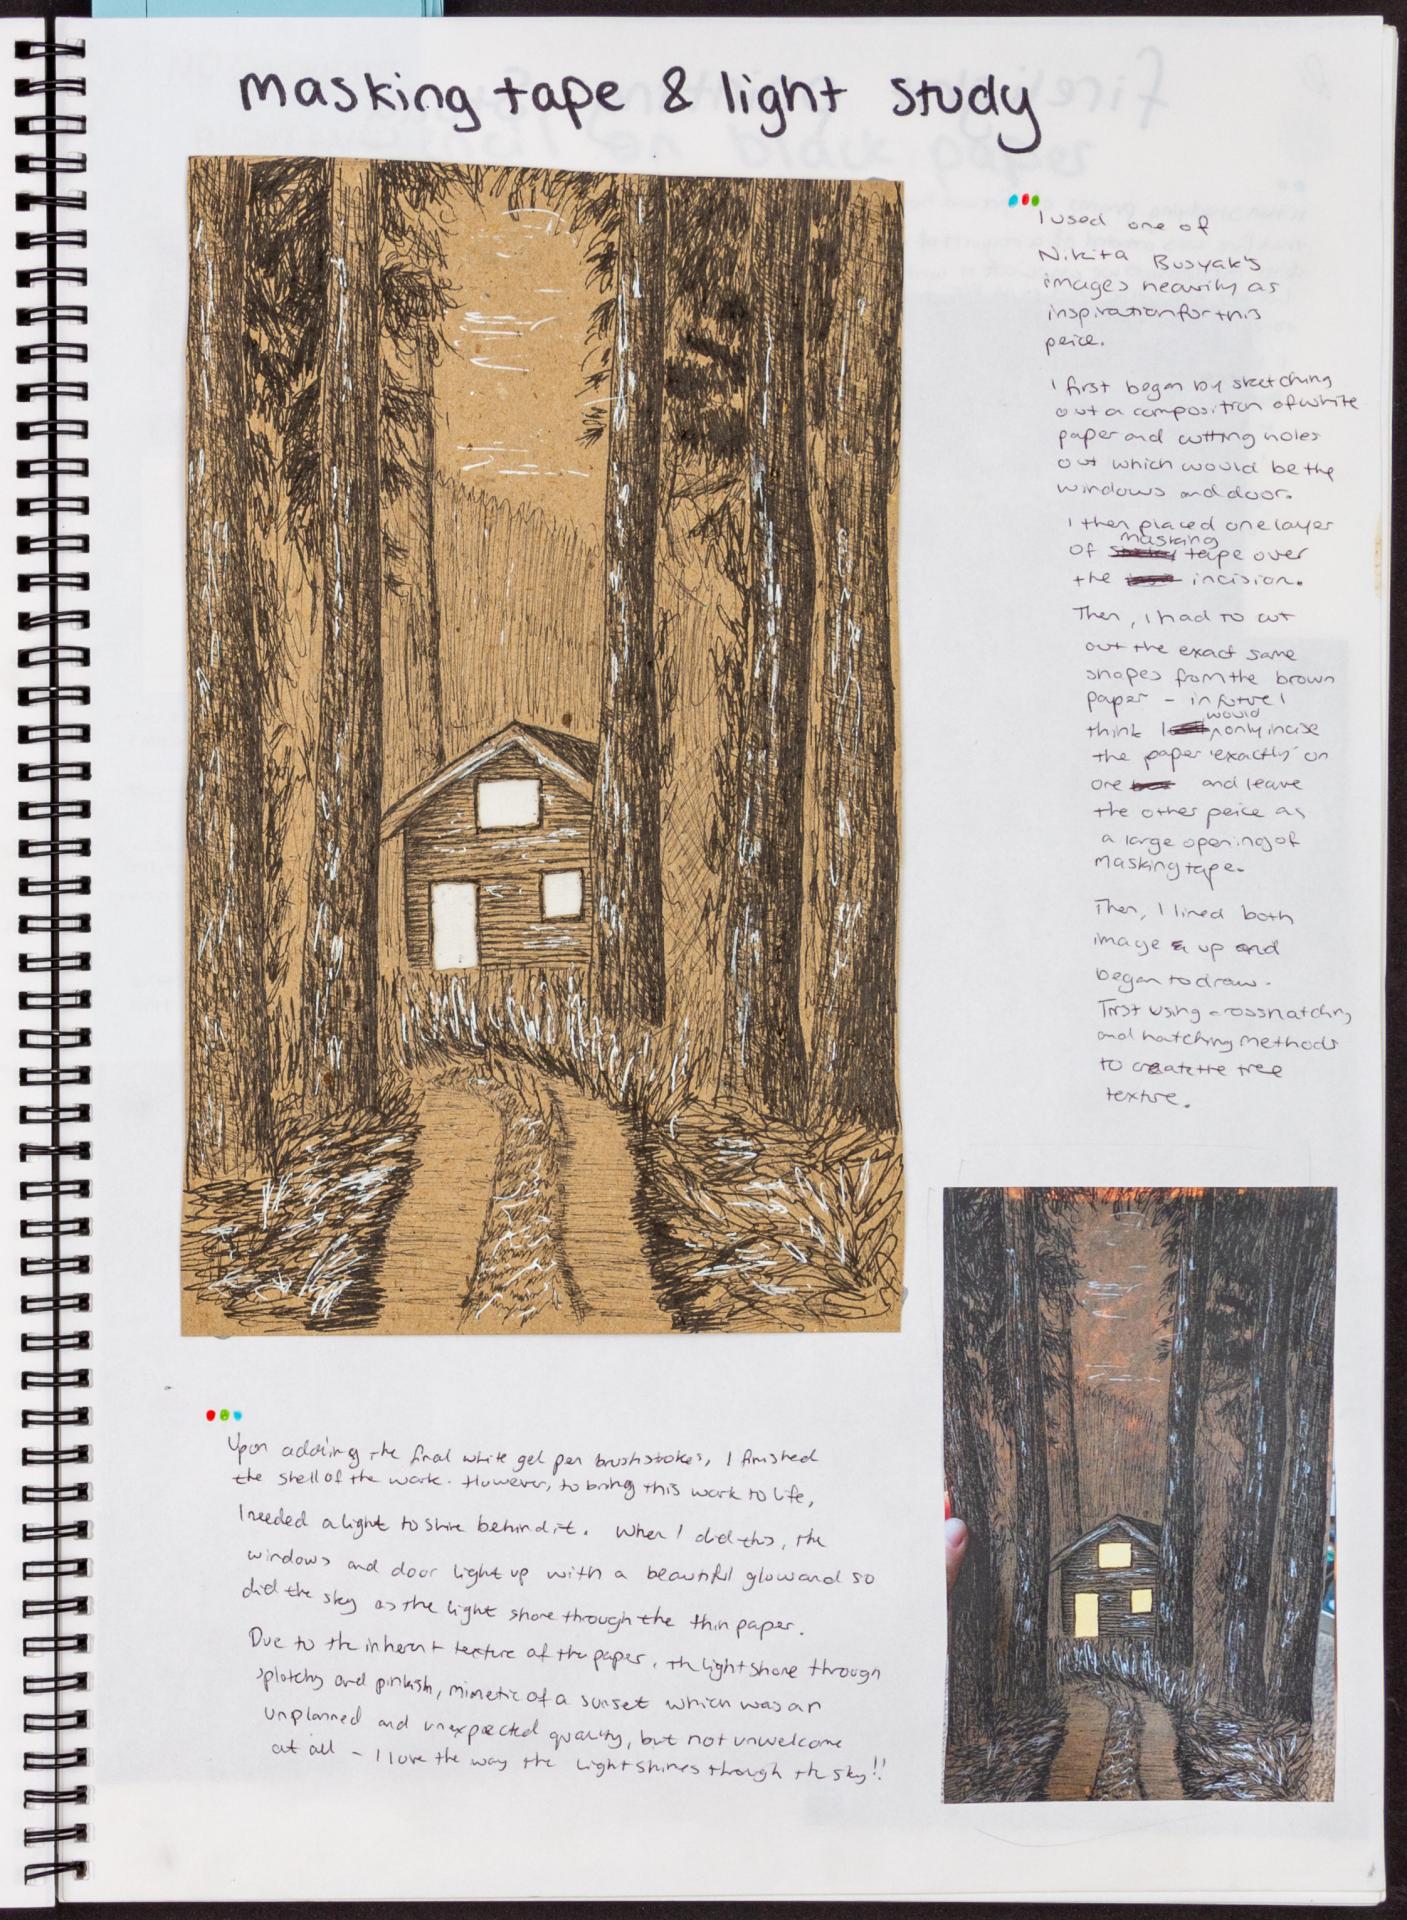 masking tape & light study
I used one of
Nikita Busyak's
images heavily as
inspiration for this
peice.
I first began by sketching
out a composition of white
paper and cutting holes
out which would be the
windows and door.
I then placed one layer
of masking tape over
the incision.
Then, I had to cut
out the exact same
shapes from the brown
paper - in future I
think I would only incise
the paper 'exactly' on
one and leave
the other peice as
a large opening of
masking tape.
Then, I lined both
image & up and
began to draw.
First using crosshatching
and hatching methods
to create the tree
texture.
Upon adding the final white gel pen brushstokes, I finished
the shell of the work. However, to bring this work to life,
I needed a light to shine behind it. When I did this, the
windows and door light up with a beautiful glow and so
did the sky as the light shone through the thin paper.
Due to the inherent texture of the paper, the light shone through
splotchy and pinkish, mimetic of a sunset which was an
unplanned and unexpected quality, but not unwelcome
at all - I love the way the light shines through the sky!!